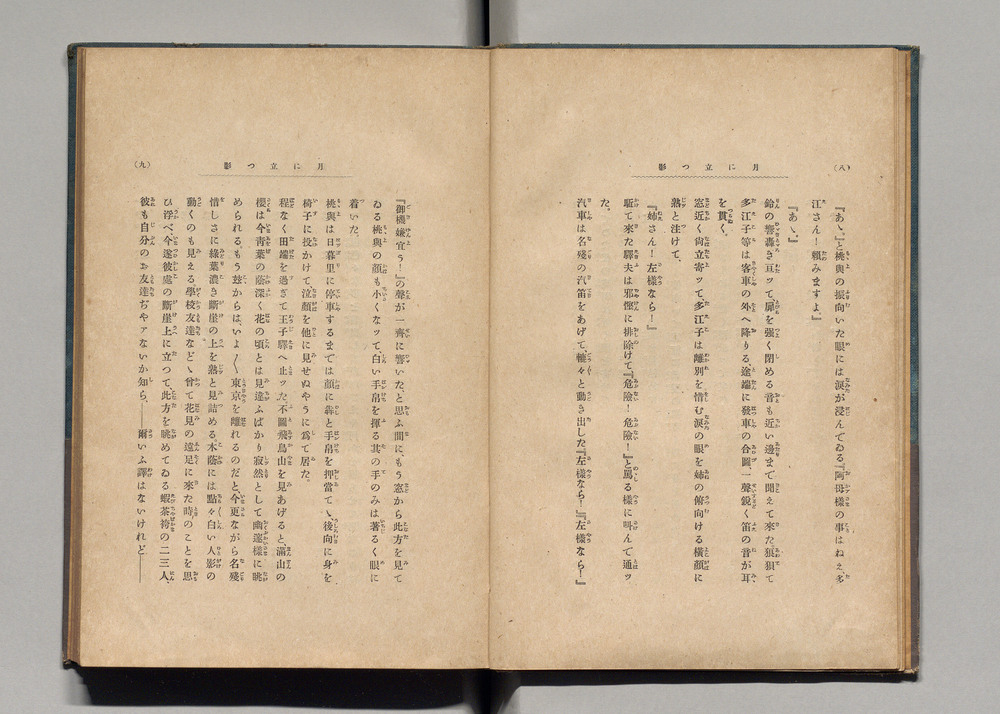 (八)
月に立つ影
『あゝ。』と桃與の振向いた眼には涙が浸んでゐる『阿母樣の事はねえ、多
江さん！賴みますよ。』
『あゝ。』
鈴の響轟き亘ッて、扉を强く閉める音も近い邊まで聞えて來た。狼狽て
多江子等は客車の外へ降りる、途端に發車の合圖一聲鋭く笛の音が耳
を貫く。
窓近く尚立寄ッて、多江子は離別を惜む涙の眼を姉の俯向ける橫顏に
熟と注けて、
『姉さん！左樣なら！』
驅て來た驛夫は邪慳に排除けて、『危險！危險！』と罵る樣に叫んで通ッ
た。
汽車は名殘の汽笛をあげて、轆々と動き出した『左樣なら！』『左樣なら！』
(九)
月に立つ影
『御機嫌宜う！』の聲が一齊に響いたと思ふ間に、もう窓から此方を見て
ゐる桃與の顏も小くなッて、白い手帛を揮る其の手のみは著るく眼に
着いた。
桃與は日暮里に停車するまでは顏に犇と手帛を押當てゝ、後向に身を
椅子に投かけて泣顏を他に見せぬやうに爲て居た。
程なく田端を過ぎて王子驛へ止ッた。不圖飛鳥山を見あげると、滿山の
櫻は今靑葉の蔭深く、花の頃とは見違ふばかり寂然として幽邃樣に眺
められる。もう玆からは、いよ〱東京を離れるのだと、今更ながら名殘
惜しさに綠葉濃き斷崖の上を熟と見詰める木蔭には點々白い人影の
動くのも見える學校友達などゝ曾て花見の遠足に來た時のことを思
ひ浮べ、今遂彼處の斷崖上に立つて、此方を眺めてゐる蝦茶袴の二三人、
彼も自分のお友達ぢやアないか知ら、――爾いふ譯はないけれど――